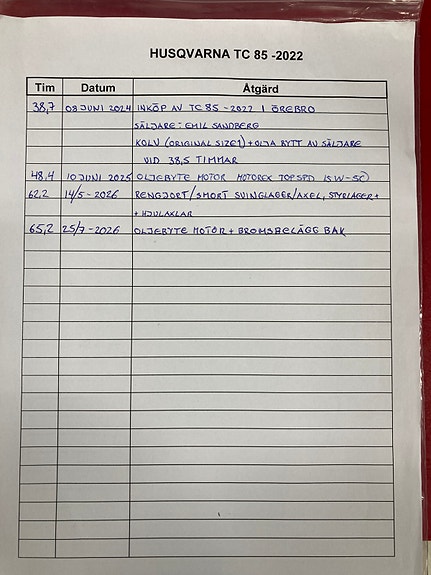 HUSQVARNA TC 85 -2022
Tim Datum Åtgärd
38,7 08 JUNI 2024 INKÖP AV TC 85 -2022 I ÖREBRO
SÄLJARE: EMIL SANDBERG
KOLV (ORIGINAL SIZE1) + OLJA BYTT AV SÄLJARE
VID 38,5 TIMMAR
48,4 10 JUNI 2025 OLJEBYTE MOTOR MOTOREX TOPSPD 15W-50
62,2 14/5-2026 RENGJORT/SMORT SVINGLAGER/AXEL, STYRLAGER+
+ HJULAXLAR
65,2 25/7-2026 OLJEBYTE MOTOR + BROMSBELÄGG BAK